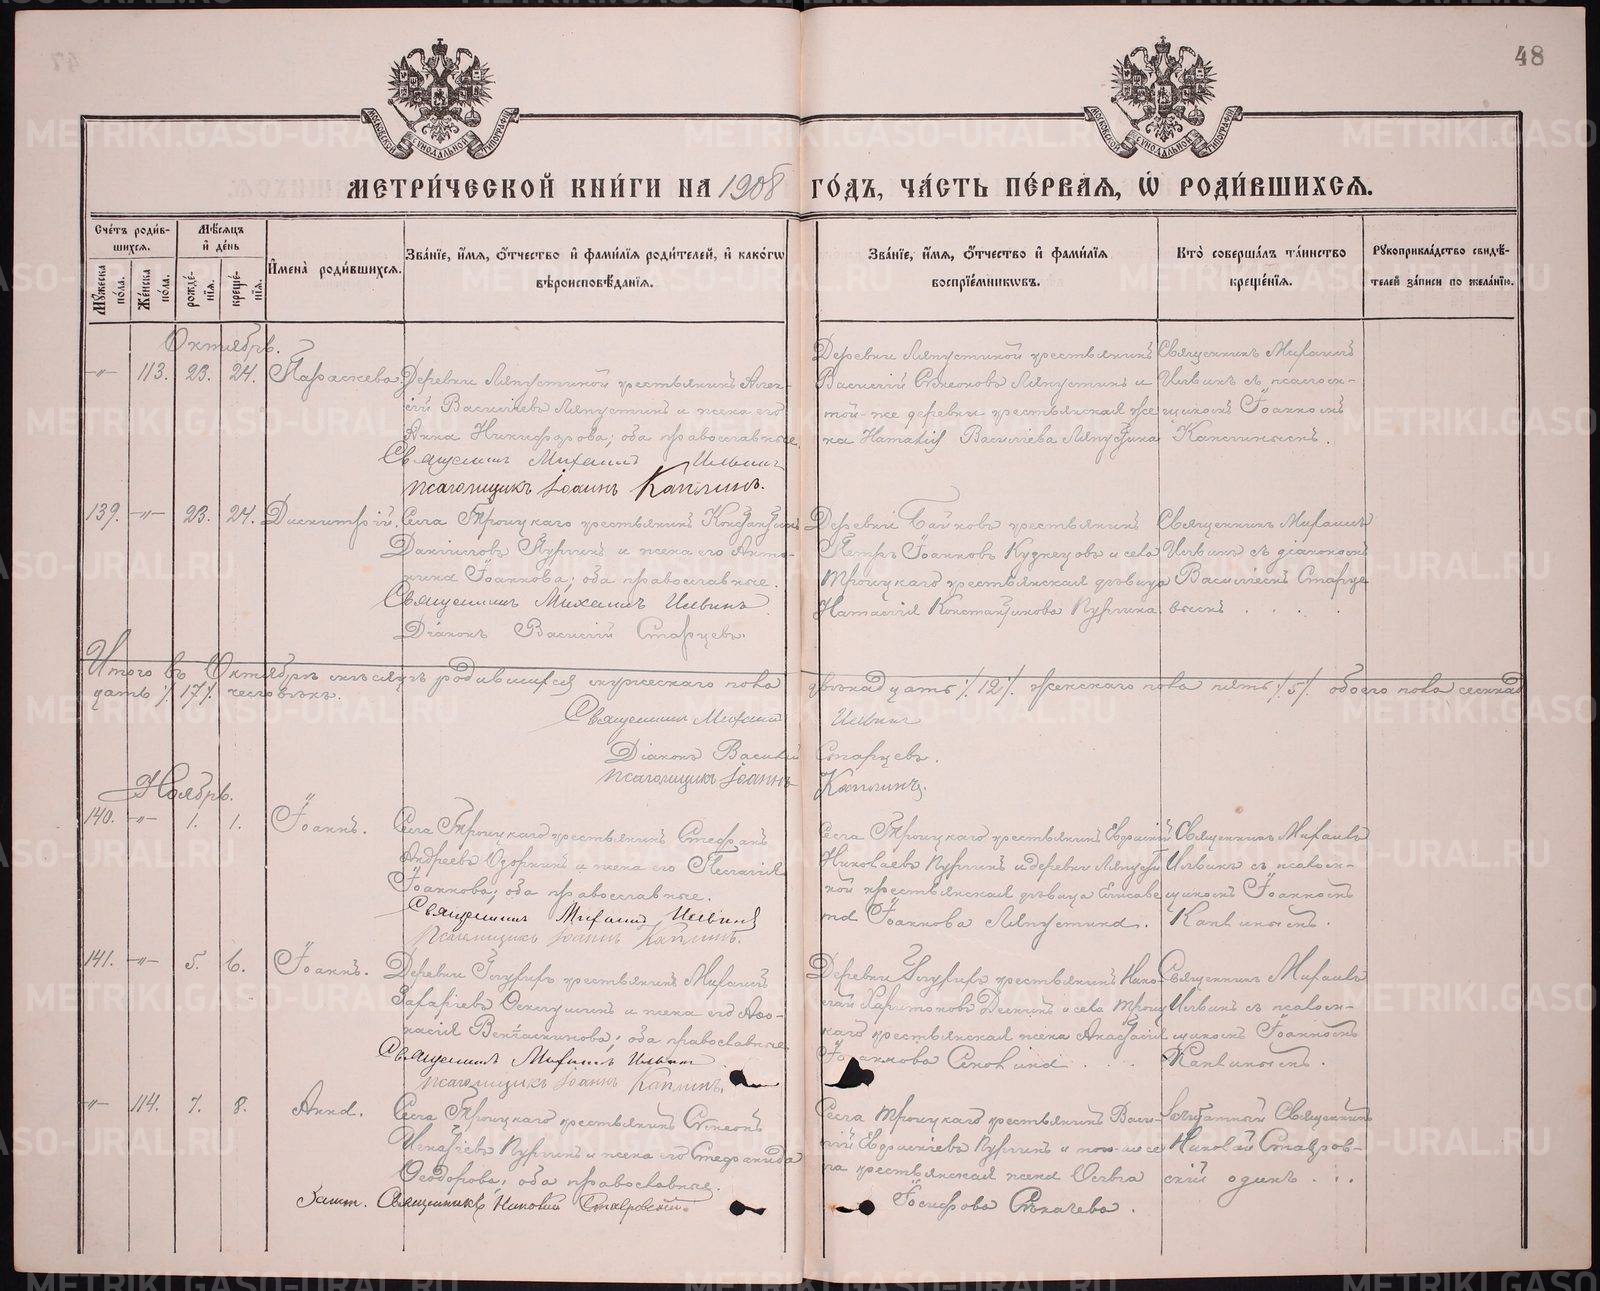 48
МОСКОВСКОЙ СѴНОДАЛЬНОЙ ТИПОГРАФІИ
МОСКОВСКОЙ СѴНОДАЛЬНОЙ ТИПОГРАФІИ
МЕТРИ́ЧЕСКОЙ КНИ́ГИ НА 1908 ГО́ДЪ, ЧА́СТЬ ПЕ́РВАѦ, Ѡ҆ РОДИ́ВШИХСѦ.
Сче́тъ роди́в-
шихсѧ.
Мꙋ́жеска по́ла.
Же́нска по́ла.
Мѣ́сѧцъ
и҆ де́нь
рожде́-
нїѧ.
креще́-
нїѧ.
И҆мена̀ роди́вшихсѧ.
Зва́нїе, и҆́мѧ, ѻ҆́тчество и҆ фами́лїѧ роди́телей, и҆ како́гѡ
вѣроисповѣ́данїѧ.
Зва́нїе, и҆́мѧ, ѻ҆́тчество и҆ фами́лїѧ
воспрїе́мникѡвъ.
Кто̀ соверша́лъ та́инство
креще́нїѧ.
Рꙋкоприкла́дство свидѣ́-
телей за́писи по жела́нїю.
Октябрь.
-"- 113. 23. 24. Параскева.
Деревни Ляпустиной крестьянинъ Алек-
сій Василіевъ Ляпустинъ и жена его
Анна Никифорова; оба православные.
Священникъ Михаилъ Ильинъ
псаломщикъ Іоаннъ Каплинъ.
Деревни Ляпустиной крестьянинъ
Василій Симеоновъ Ляпустинъ и
той-же деревни крестьянская же
на Наталія Василіева Ляпустина
Священникъ Михаилъ
Ильинъ съ псалом-
щикомъ Іоанномъ
Каплинымъ.
139. -"- 23. 24. Димитрій.
Села Троицкаго крестьянинъ Константинъ
Даніиловъ Пургинъ и жена его Анто-
нина Іоаннова; оба православные.
Священникъ Михаилъ Ильинъ
Діаконъ Василій Старцевъ.
Деревни крестьянинъ
Петръ Іоанновъ Кузнецовъ и села
Троицкаго крестьянская дѣвица
Наталія Константинова Пургина.
Священникъ Михаилъ
Ильинъ съ діакономъ
Василіемъ Старце
вымъ . . . .
Итого въ Октябрѣ мѣсяцѣ родившихся мужескаго пола двѣнадцать /12/. женскаго пола пять /5/. обоего пола семнад
цать /17/. человѣкъ.
Священникъ Михаилъ Ильинъ
Діаконъ Василій Старцевъ.
псаломщикъ Іоаннъ Каплинъ.
Ноябрь.
140. -"- 1. 1. Іоаннъ.
Села Троицкаго крестьянинъ Стефанъ
Андреевъ и жена его Пелагія
Іоаннова; оба православные.
Священникъ Михаилъ Ильинъ
Псаломщикъ Іоаннъ Каплинъ.
Села Троицкаго крестьянинъ
Николаевъ Пургинъ и деревни Ляпусти
ной крестьянская дѣвица Елисаве
та Іоаннова Ляпустина.
Священникъ Михаилъ
Ильинъ съ псалом-
щикомъ Іоанномъ
Каплинымъ.
141. -"- 5. 6. Іоаннъ.
Деревни крестьянинъ Михаилъ
Захаріевъ и жена его Аѳа-
насія Веніаминова; оба православные
Священникъ Михаилъ Ильинъ
псаломщикъ Іоаннъ Каплинъ.
Деревни крестьянинъ Нико-
лай Харитоновъ и села Трои
каго крестьянская жена Анастасія
Іоаннова . . .
Священникъ Михаилъ
Ильинъ съ псалом-
щикомъ Іоанномъ
Каплинымъ.
-"- 114. 7. 8. Анна.
Села Троицкаго крестьянинъ Симеонъ
Игнатіевъ Пургинъ и жена его Стефанида
Ѳеодорова; оба православные.
Зашт. Священникъ Николай Ставровскій.
Села Троицкаго крестьянинъ Васи-
лій Пургинъ и того-же се
ла крестьянская жена
Іосифова .
Заштатный Священникъ
Николай Ставров-
скій одинъ . . .
METRIKI.GASO-URAL.RU